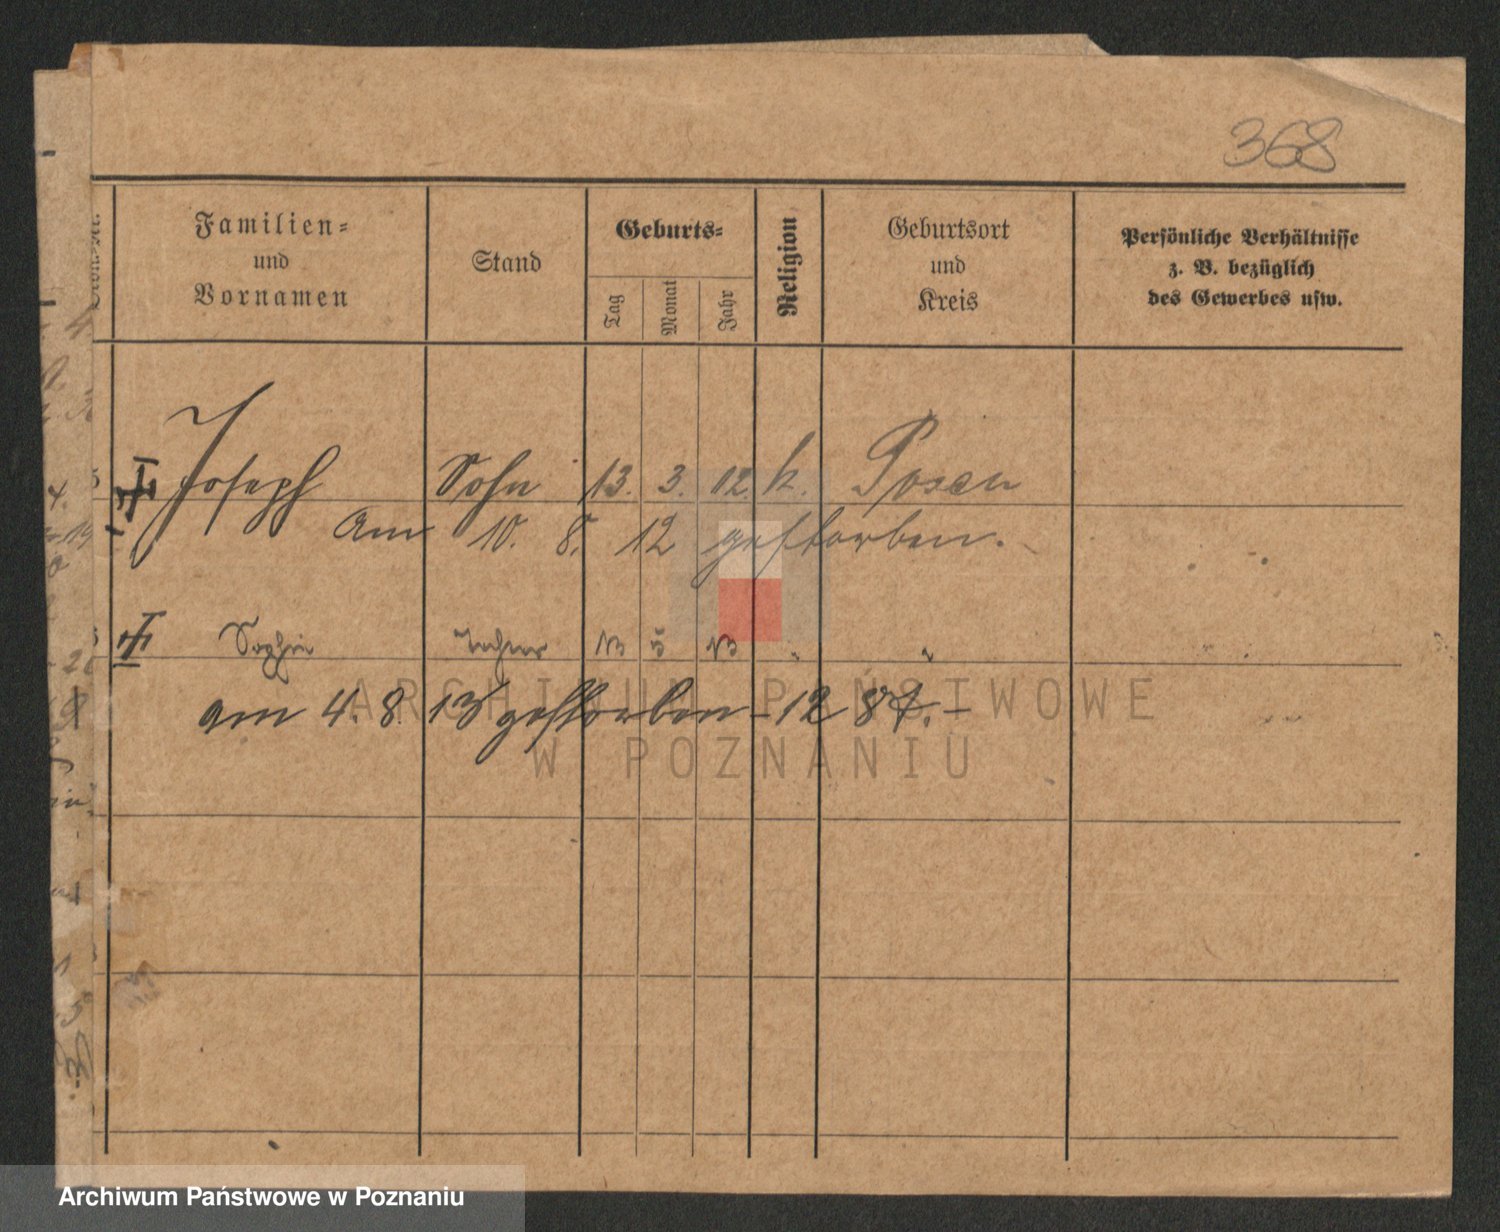 368
Familien=
und
Vornamen
Stand
Geburts=
Tag
Monat
Jahr
Religion
Geburtsort
und
Kreis
Persönliche Verhältnisse
z. B. bezüglich
des Gewerbes usw.
Joseph Sohn 13. 3. 12. k. Posen
Am 10. 8. 12 gestorben.
Sophie 13 5 13 " "
am 4. 8. 13 gestorben – 12 87. –
ARCHIWUM PAŃSTWOWE
W POZNANIU
Archiwum Państwowe w Poznaniu